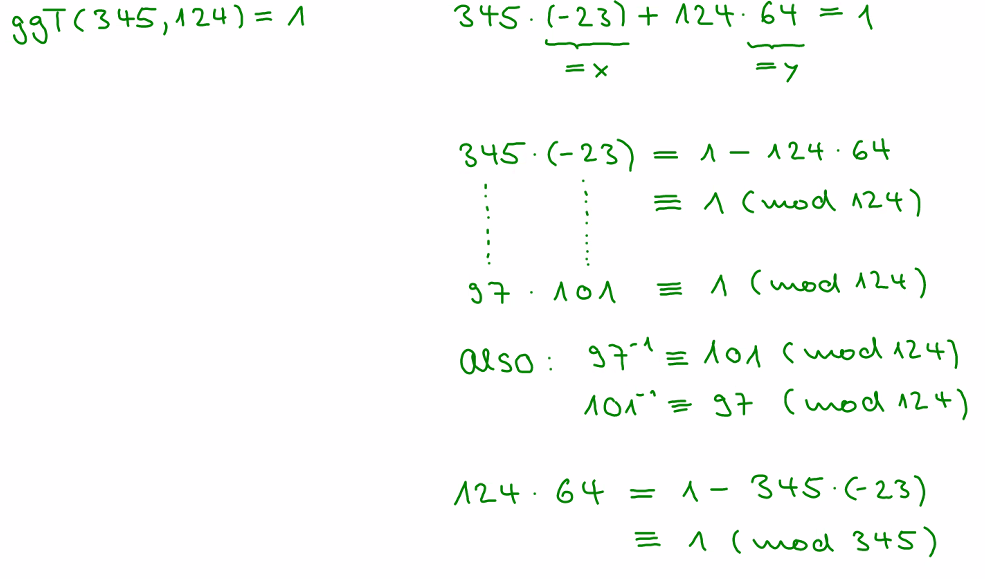 ggT(345,124) = 1
345 · (-23) + 124 · 64 = 1
= x = y
345 · (-23) = 1 - 124 · 64
≡ 1 (mod 124)
97 · 101 ≡ 1 (mod 124)
also: 97⁻¹ ≡ 101 (mod 124)
101⁻¹ ≡ 97 (mod 124)
124 · 64 = 1 - 345 · (-23)
≡ 1 (mod 345)